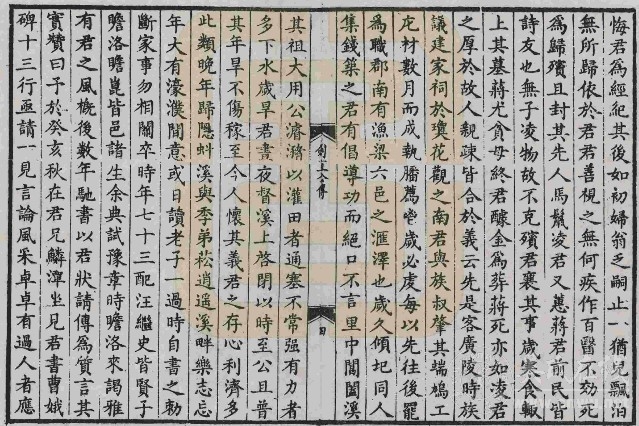 悔君為經紀其後如初婦翁乏嗣止一猶兒飄泊
無所歸依於君君善視之無何疾作百醫不効死
為歸殯且封其先人馬鬣凌君又慫蔣君前民皆
詩友也無子凌物故不克殯君襄其事歲寒食輙
上其墓蔣尤貧母終君醵金為葬蔣死亦如凌君
之厚於故人親疎皆合於義云先是客廣陵時族
議建家祠於瓊花觀之南君與族叔肇其端鳩工
庀材數月而成執膰薦嘗歲必處每以先往後罷
為職郡南有漁梁六邑之滙澤也歲久傾圮同人
集錢築之君有倡導功而絕口不言里中閶閶溪
其祖大用公濬瀦以灌田者通塞不常强有力者
多下水歲旱君晝夜督溪上啓閉以時至公且普
其年旱不傷稼至今人懷其義君之存心利濟多
此類晚年歸隱蚪溪與季弟崧逍遥溪畔樂志忘
年大有濠濮間意或日讀老子一過時自書之勅
斷家事勿相關卒時年七十三配汪繼史皆賢子
瞻洛瞻崑皆邑諸生余典試豫章時瞻洛来謁雅
有君之風槪後數年馳書以君狀請傳為質言其
實贊曰予於癸亥秋在君兄麟潭坐見君書曹娥
碑十三行亟請一見言論風采卓卓有過人者應